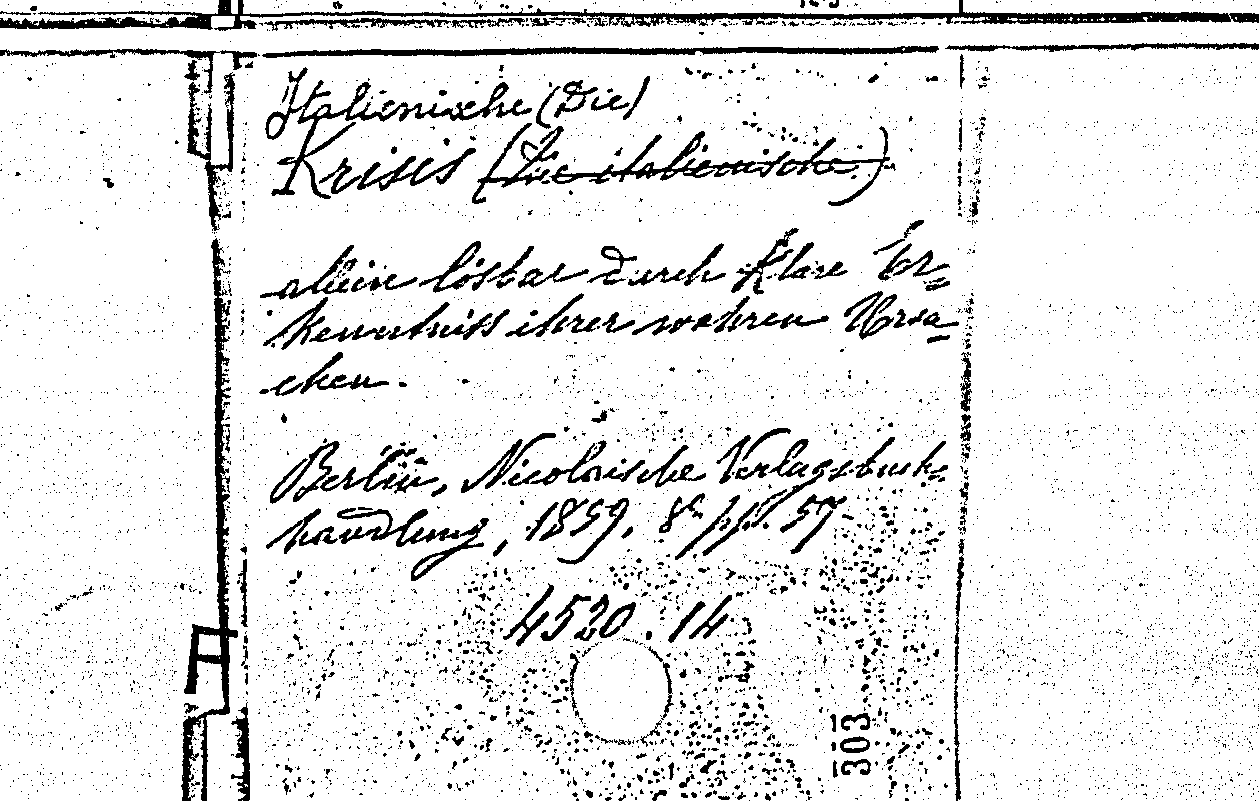 Italienische (Die)
Krisis (Die italienische)
allein lösbar durch Klare Er=
kenntniss ihrer wahren Ursa=
chen.
Berlin, Nicolaische Verlagsbuch=
handlung, 1859, 8º pp. 57
4520.14
303